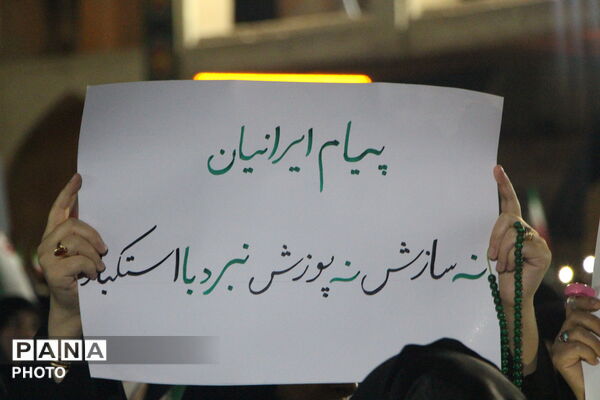 پیام ایرانیان
نه سازش نه پوزش نبرد با استکبار
PANA
PHOTO